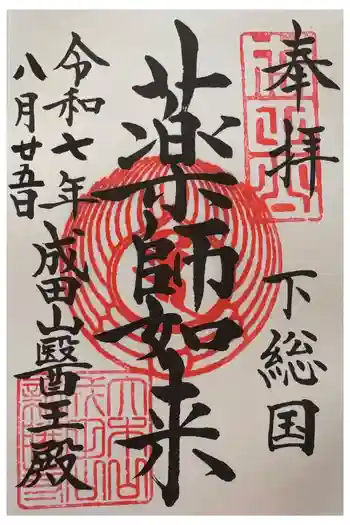 奉拝
下総国
薬師如来
成田山醫王殿
令和七年
八月廿五日